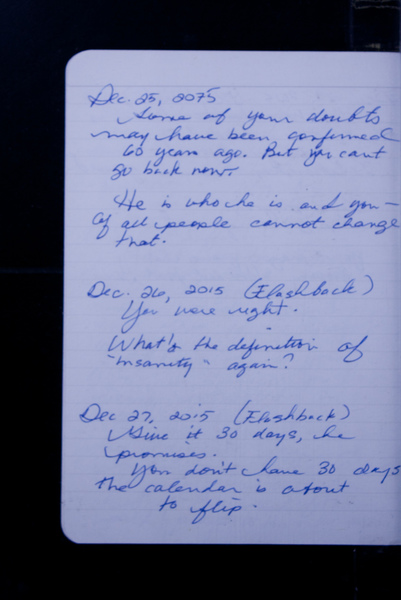 Dec. 25, 2075
Some of your doubts
may have been confirmed
60 years ago. But you can't
go back now.
He is who he is and you -
of all people cannot change
that.
Dec. 26, 2015 (Flashback)
You were right.
What's the definition of
"insanity" again?
Dec 27, 2015 (Flashback)
Give it 30 days, he
promises.
You don't have 30 days
the calendar is about
to flip.